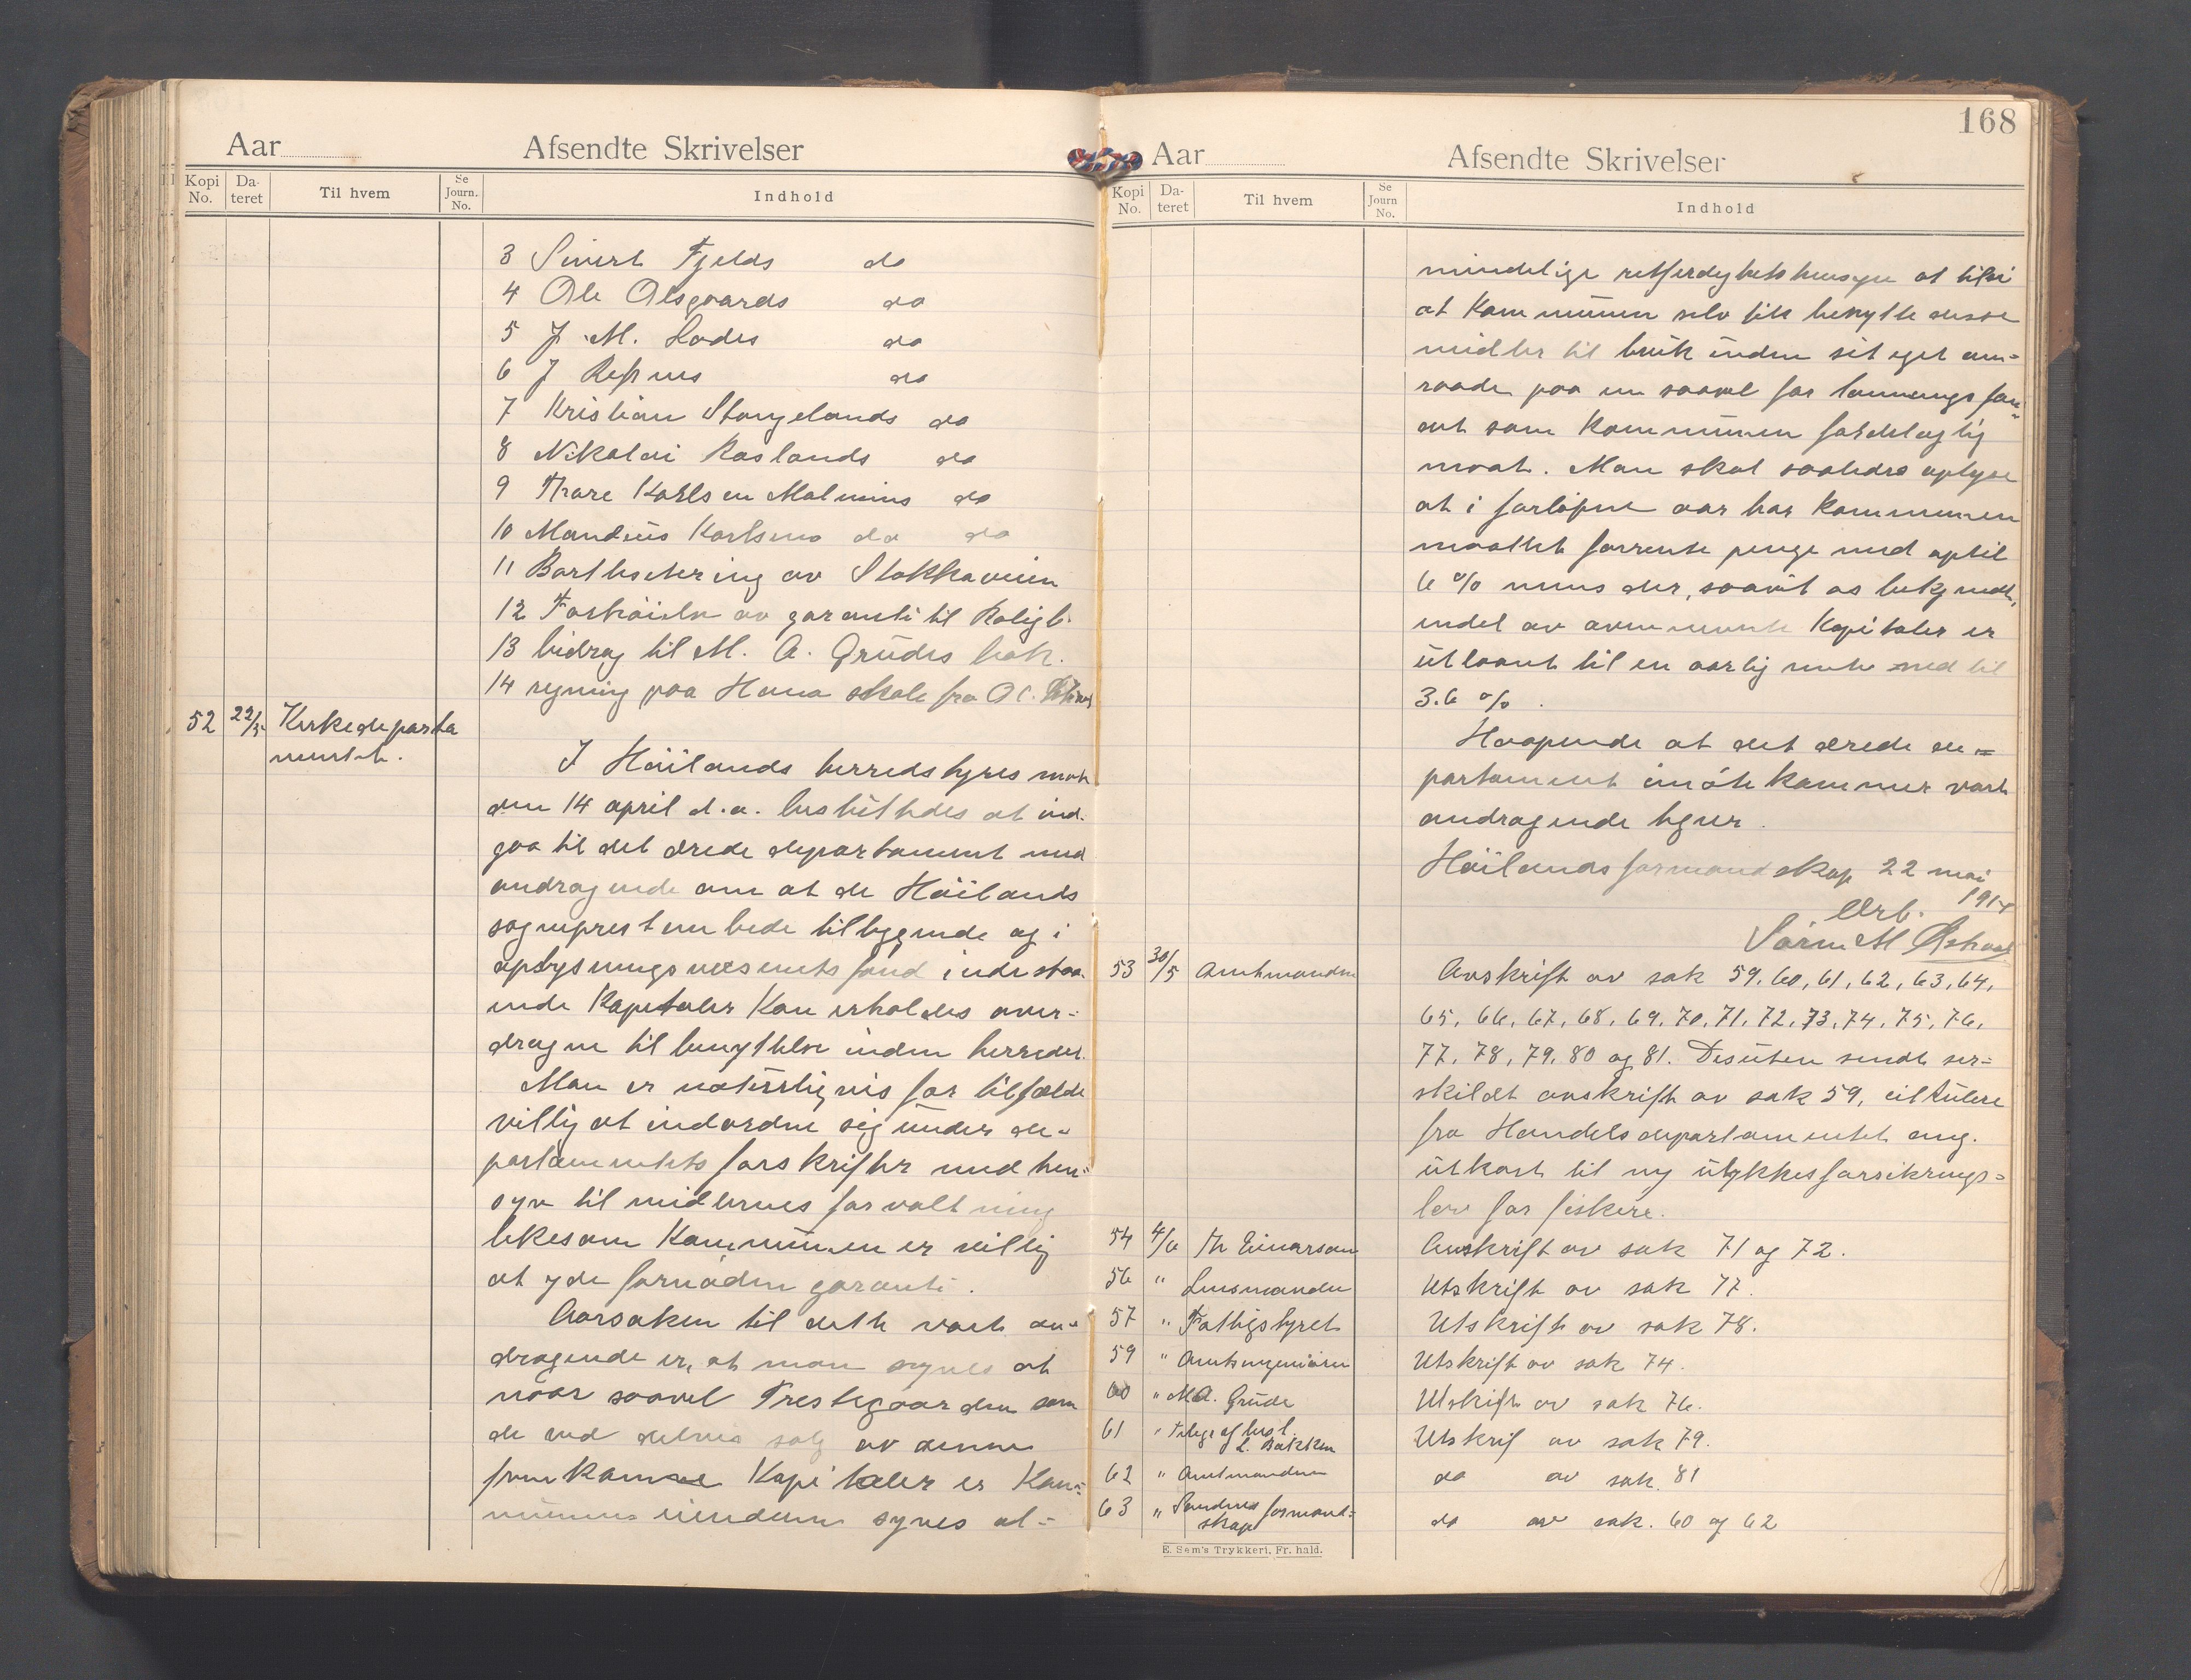 Aar
Afsendte Skrivelser
Kopi No.
Dateret
Til hvem
Se Journ. No.
Indhold
3 Sivert Fjelds do
4 Ole Olsgaards do
5 J. M. Lodes do
6 J Refsnes do
7 Kristian Stangelands do
8 Nikolai Raslands do
9 Thore Karlsen Malmins do
10 Mandius Karlsens do do
11 Bortlisitering av Stokkaveien
12 Forhöielse av garanti til Roligh.
13 bidrag til M. A. Grudes bak.
14 regning paa Hana skole fra O C.
52 22/5 Kirkedeparta
mentet.
I Höilands herredstyres møte
den 14 april d.a. besluttedes at ind-
gaa til det ærede departament med
andragende om at de Höilands
sogneprestembede tilliggende og i
oplysningsvæsenets fond indestaa-
ende Kapitaler kan erholdes over-
dragne til benyttelse inden herredet.
Man er naturligvis for tilfælde
villig at indordne sig under de-
partamentets forskrifter med hen-
syn til midlernes forvaltning
likesom Kommunen er villig
at yde fornöden garanti.
Aarsaken til dette vort an-
dragende er, at man synes at
naar saavel Prestegaarden som
de ved delvis salg av denne
fremkomne Kapitaler er Kom-
munens eiendom synes al-
168
Aar
Afsendte Skrivelser
Kopi No.
Dateret
Til hvem
Se Journ No.
Indhold
mindelige retferdighetshensyn at tilsi
at Kommunen selv fik benytte disse
midler til bruk inden sit eget om-
raade paa en saavel for lønningsfon-
det som Kommunen fordelagtig
maate. Man skal saaledes oplyse
at i forløpne aar har Kommunen
maattet forrente penge med optil
6 % mens der, saavit os bekjendt,
endel av ovennevnte Kapitaler er
utlaant til en aarlig rente ned til
3.6 %.
Haapende at det ærede de-
partament imötekommer vort
andragende tegner.
Höilands formandskap 22 mai
1914
Ærb.
Sören M
53 30/5 Amtmanden
Avskrift av sak 59, 60, 61, 62, 63, 64,
65, 66, 67, 68, 69, 70, 71, 72, 73, 74, 75, 76,
77, 78, 79, 80 og 81. Desuten sendt ser-
skildt avskrift av sak 59, cirkulære
fra Handelsdepartamentet ang.
utkast til ny ulykkesforsikrings-
lov for fiskere.
54 4/6 Th Einarsen Avskrift av sak 71 og 72.
56 " Lensmanden Utskrift av sak 77.
57 " Fattigstyret Utskrift av sak 78.
59 " Amtsingeniøren Utskrift av sak 74.
60 " M.A. Grude Utskrift av sak 76.
61 " L. Bakken Utskrif av sak 79.
62 " Amtmanden do av sak. 81
63 " Sandnes formand-
skap do av sak. 60 og 62
E. Sem's Trykkeri, Fr. hald.